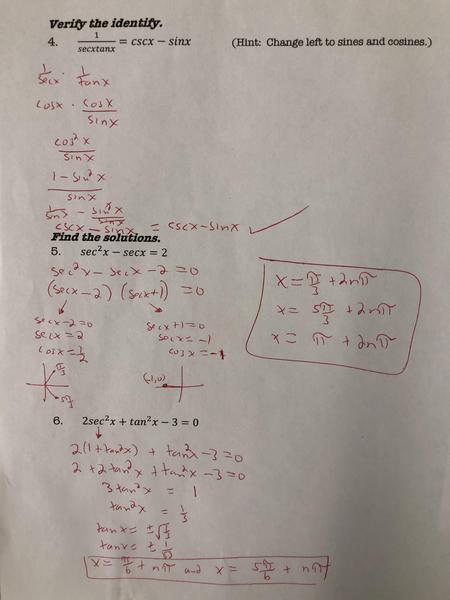 Verify the identify.
4. 1/(secxtanx) = cscx − sinx (Hint: Change left to sines and cosines.)
1/secx · 1/tanx
cosx · cosx/sinx
cos²x/sinx
1 − sin²x/sinx
1/sinx − sin²x/sinx
cscx − sinx = cscx − sinx ✓
Find the solutions.
5. sec²x − secx = 2
sec²x − secx − 2 = 0
(secx − 2) (secx + 1) = 0
secx − 2 = 0
secx = 2
cosx = 1/2
π/3
5π/3
secx + 1 = 0
secx = −1
cosx = −1
(−1,0)
x = π/3 + 2nπ
x = 5π/3 + 2nπ
x = π + 2nπ
6. 2sec²x + tan²x − 3 = 0
2(1 + tan²x) + tan²x − 3 = 0
2 + 2tan²x + tan²x − 3 = 0
3tan²x = 1
tan²x = 1/3
tanx = ±√(1/3)
tanx = ± 1/√3
x = π/6 + nπ and x = 5π/6 + nπ